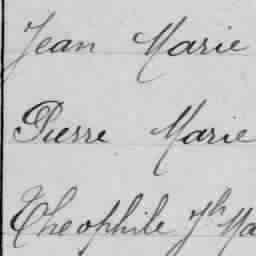 Jean Marie
Pierre Marie
Théophile Jh Ma